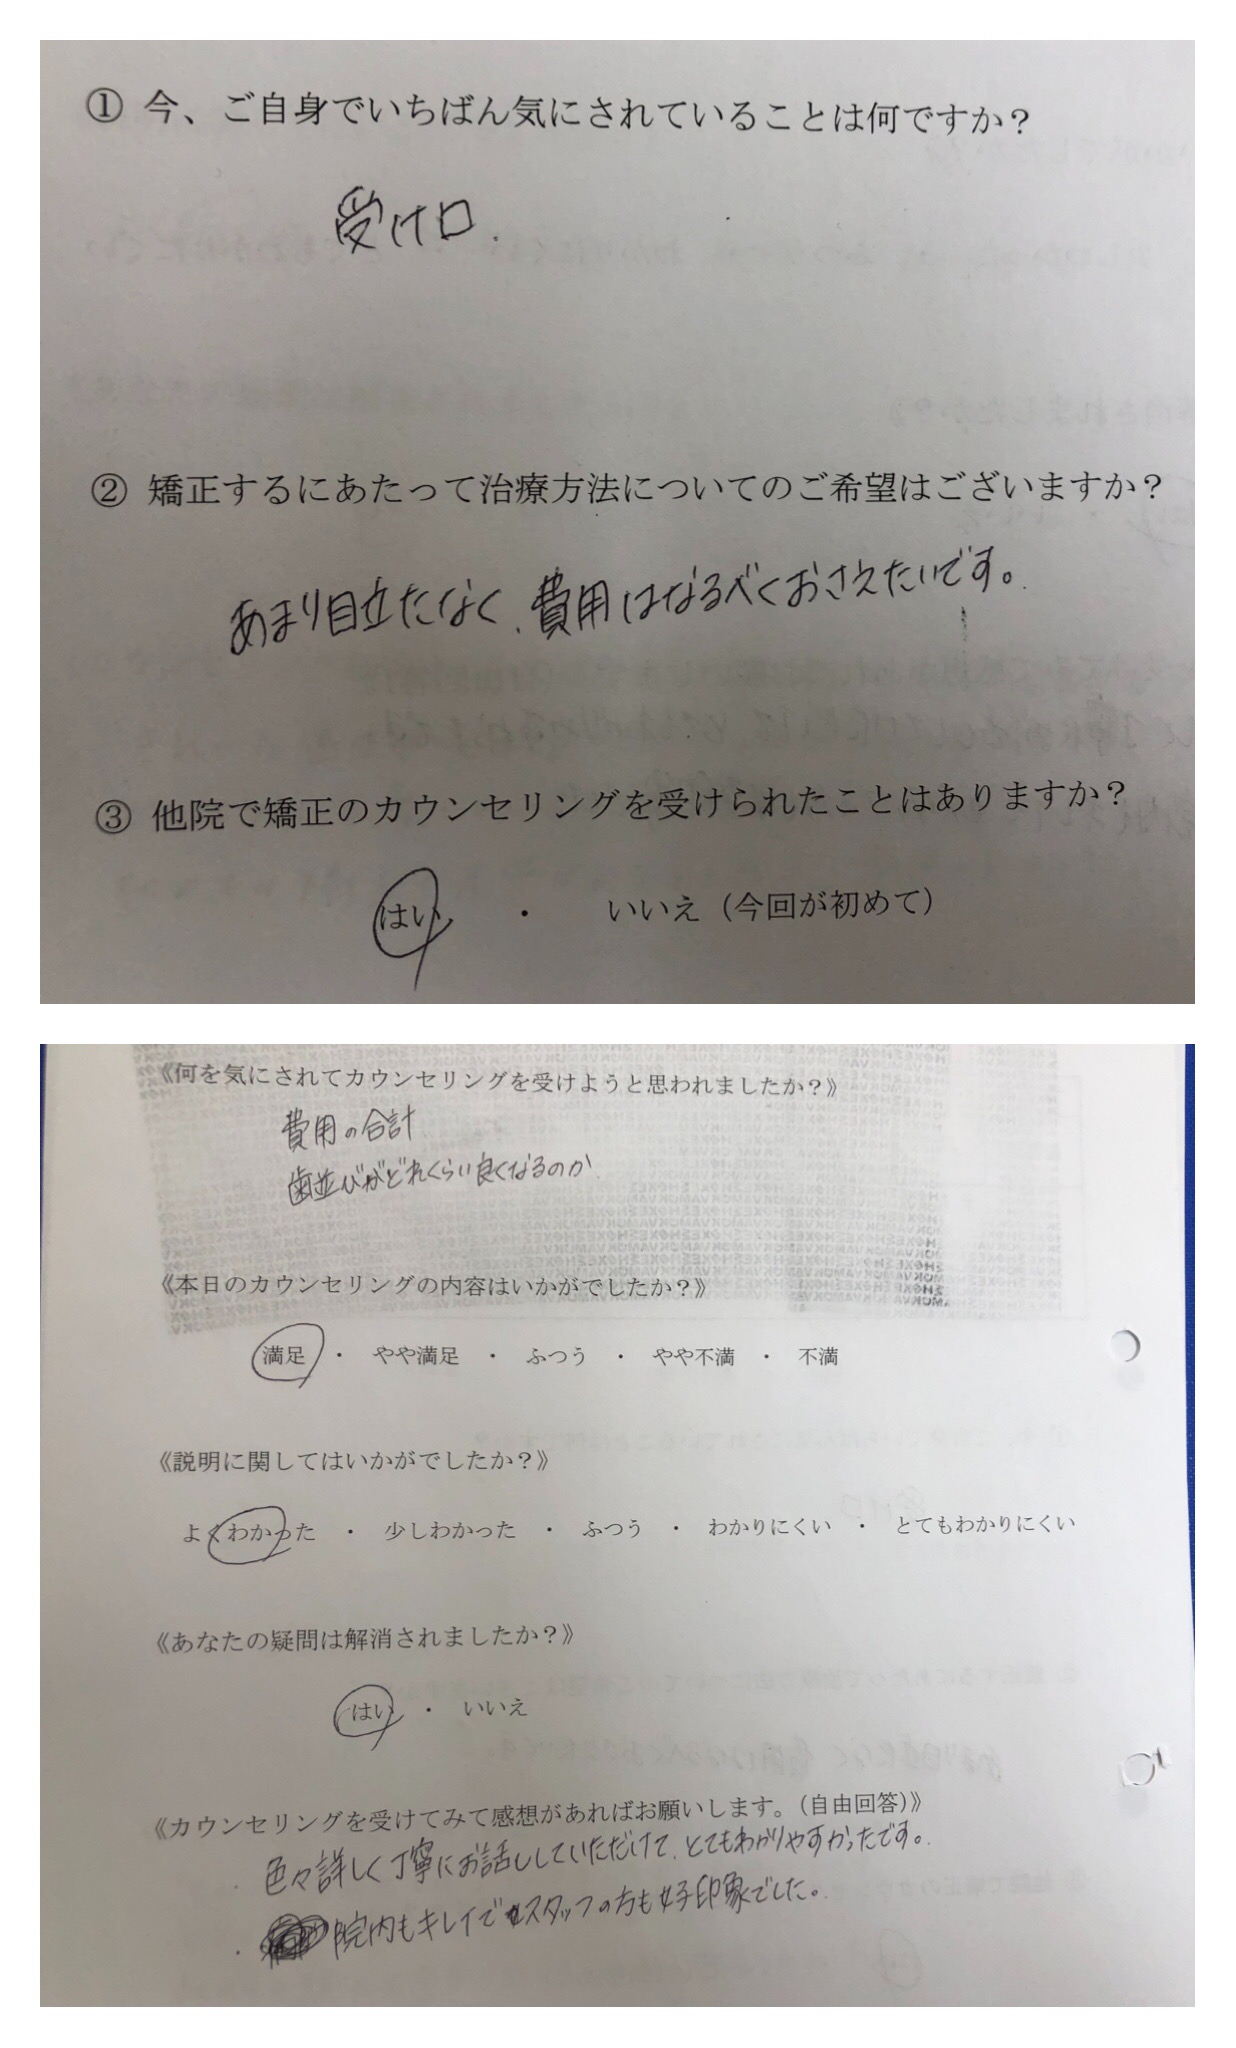 ① 今、ご自身でいちばん気にされていることは何ですか？
受け口.
② 矯正するにあたって治療方法についてのご希望はございますか？
あまり目立たなく、費用はなるべくおさえたいです。
③ 他院で矯正のカウンセリングを受けられたことはありますか？
はい ・ いいえ（今回が初めて）
《何を気にされてカウンセリングを受けようと思われましたか？》
費用の合計
歯並びがどれくらい良くなるのか
《本日のカウンセリングの内容はいかがでしたか？》
満足 ・ やや満足 ・ ふつう ・ やや不満 ・ 不満
《説明に関してはいかがでしたか？》
よくわかった ・ 少しわかった ・ ふつう ・ わかりにくい ・ とてもわかりにくい
《あなたの疑問は解消されましたか？》
はい ・ いいえ
《カウンセリングを受けてみて感想があればお願いします。（自由回答）》
・色々詳しく丁寧にお話ししていただけて、とてもわかりやすかったです。
・院内もキレイでスタッフの方も好印象でした。